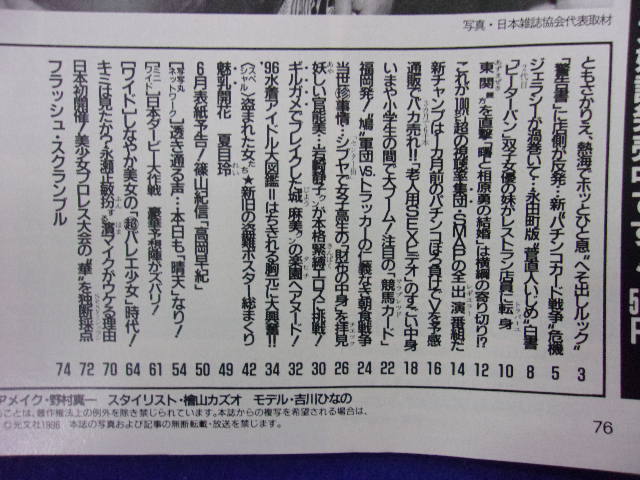 写真・日本雑誌協会代表取材
ともさかりえ、熱海でホッとひと息“ヘソ出しルック” 3
「警告書」に店側が反発…新“パチンコカード戦争”危機 5
ジェラシーが渦巻いて…永田町版“菅直人いじめ”白書 8
「ピーターパン」2代目双子女優の妹がレストラン店員に転身 10
東関が を直撃!「曙と相原勇の結婚」は横綱の寄り切り!? 12
これが100%超の視聴率集団・SMAPの全出演番組だ 14
新チャンプは1カ月前のパチンコぼろ負けでVを予感 16
通販でバカ売れ!!「老人用SEXビデオ」のすごい中身 18
いまや小学生の間で大ブーム!注目の「競馬カード」 22
福岡発!“鳩”軍団vs.トラッカーの仁義なき朝食戦争 24
当世珍事情…シブヤで女子高生の「財布の中身」を拝見 26
妖しい官能美…岩最静子さんが本格緊縛エロスに挑戦! 30
ギルガメでブレイクした城麻美さんの楽園ヘアヌード! 32
'96水着アイドル大図鑑=はちきれる胸元に大興奮!! 34
〈スペシャル〉盗まれた女たち★新旧の盗難ポスター総まくり 42
魅乳開花 夏目玲 49
6月表紙予告!篠山紀信「高岡早紀」 50
〔写写丸ネットワーク〕透き通る声…本日も「晴天」なり! 54
〔ミニワイド〕日本ダービー大作戦 豪華予想陣がズバリ! 61
〔ワイド〕しなやか美女の「超バレエ少女」時代! 64
キミは見たか?永瀬正敏扮する濱マイクがウケる理由 70
日本初開催!美少女プロレス大会の“華”を独断採点 72
フラッシュ・スクランブル 74
アメイク・野村真一 スタイリスト・檜山カズオ モデル・吉川ひなの
ることは、著作権法上の例外を除き禁じられています。本誌からの複写を希望される場合は、
©光文社1996 本誌の写真および記事の無断転載・放送を禁じます。
76